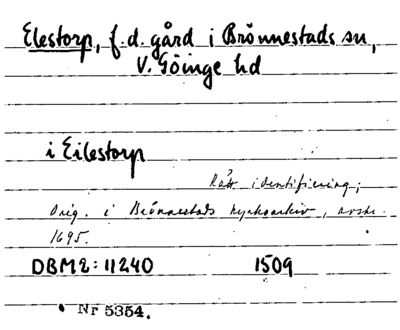 Elestorp, f.d. gård i Brönnestads sn,
V. Göinge hd
i Eilestorp
Rätt identifiering;
Orig. i Brönnestads kyrkoarkiv, avskr.
1695.
DBM2:11240 1509
Nr 5354.